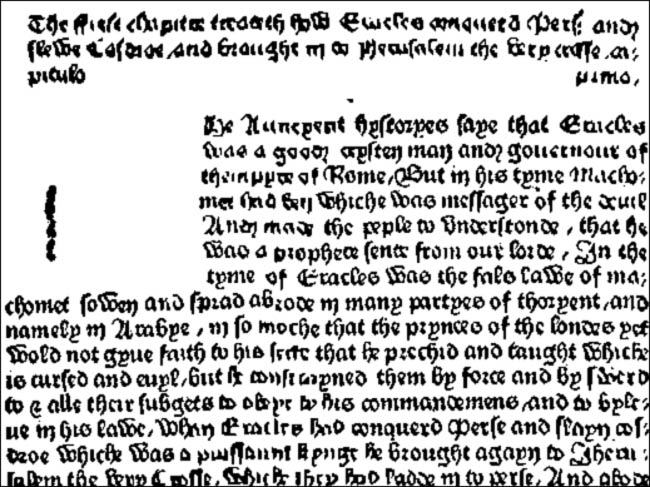 The first chapitre treateth how Eracles conquerd Perse and
slewe Cosdroe, and brought in to Jherusalem the very crosse, ca/
pitulo primo,
He Auncyent hystoryes saye that Eracles
was a good crysten man and gouernour of
thempyre of Rome, But in his tyme Macho/
met had ben whiche was messager of the deuil
And made the peple to vnderstonde, that he
was a prophete sente from our lorde, In the
tyme of Eracles was the fals lawe of ma/
chomet sowen and sprad abrode in many partyes of thoryent, and
namely in Arabye, in so moche that the prynces of the londes yet
wold not gyue faith to his secte that he prechid and taught whiche
is cursed and euyl, but he constrayned them by force and by swerd
to & alle their subgets to obeye to his commandemens, and to byle/
ue in his lawe, Whan Eracles had conquerd Perse and slayn cos/
droe whiche was a puissaunt kynge he brought agayn to Jheru/
salem the very Crosse, whiche they had ladde in to perse, And abode